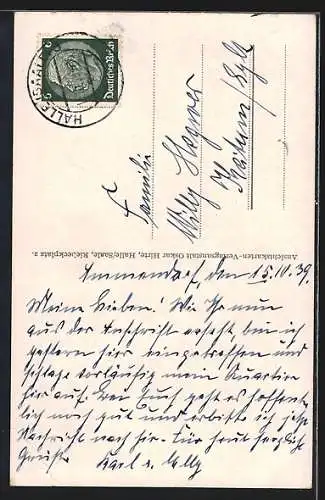 HALLE (SAALE)
6 Deutsches Reich 6
Familie
Willy
Keitum/Sylt
Ansichtskarten-Verlagsanstalt Oskar Hirte, Halle/Saale, Riebeckplatz 2
Ammendorf, den 15.10.39.
Meine Lieben! Wie Ihr nun
aus der Anschrift erseht, bin ich
gestern hier eingetroffen und
schlage vorläufig mein Quartier
hier auf. Euch geht es hoffent-
lich noch gut und erbitte ich jetzt
Nachricht nach hier. Für heut herzliche
Grüße Karl u. Milly